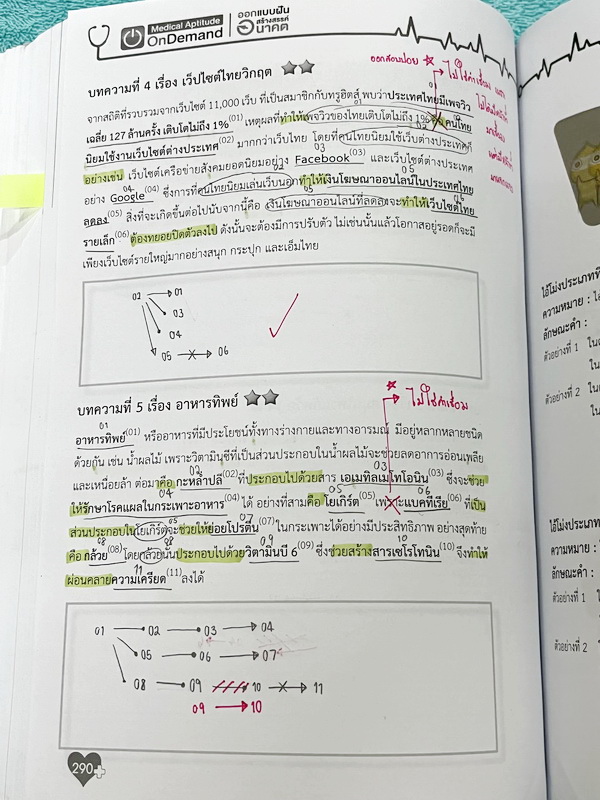 Medical Aptitude
OnDemand
ออกแบบฝัน
สร้างสรรค์
อนาคต
บทความที่ 4 เรื่อง เว็บไซต์ไทยวิกฤต
ออกสอบบ่อย
ไม่ใช่คำเชื่อม
จากสถิติที่รวบรวมจากเว็บไซต์ 11,000 เว็บ ที่เป็นสมาชิกกับทรูฮิตส์ พบว่าประเทศไทยมีเพจวิว
เฉลี่ย 127 ล้านครั้ง เติบโตไม่ถึง 1%(01) เหตุผลที่ทำให้เพจวิวของไทยเติบโตไม่ถึง 1% คนไทย
นิยมใช้งานเว็บไซต์ต่างประเทศ(02) มากกว่าเว็บไทย โดยที่คนไทยนิยมใช้เว็บต่างประเทศก็
อย่างเช่น เว็บไซต์เครือข่ายสังคมยอดนิยมอย่าง Facebook(03) และเว็บไซต์ต่างประเทศ
อย่าง Google(04) ซึ่งการที่คนไทยนิยมเล่นเว็บนอกทำให้เงินโฆษณาออนไลน์ในประเทศไทย
ลดลง(05) สิ่งที่จะเกิดขึ้นต่อไปนับจากนี้คือ เงินโฆษณาออนไลน์ที่ลดลงจะทำให้เว็บไซต์ไทย
รายเล็ก(06) ต้องทยอยปิดตัวลงไป ดังนั้นจะต้องมีการปรับตัว ไม่เช่นนั้นแล้วโอกาสอยู่รอดก็จะมี
เพียงเว็บไซต์รายใหญ่มากอย่างสนุก กระปุก และเอ็มไทย
02 01
03
04
05 06
บทความที่ 5 เรื่อง อาหารทิพย์
ไม่ใช่คำเชื่อม
01
อาหารทิพย์(01) หรืออาหารที่มีประโยชน์ทั้งทางร่างกายและทางอารมณ์ มีอยู่หลากหลายชนิด
ด้วยกัน เช่น น้ำผลไม้ เพราะวิตามินซีที่เป็นส่วนประกอบในน้ำผลไม้จะช่วยลดอาการอ่อนเพลีย
และเหนื่อยล้า ต่อมาคือ กะหล่ำปลี(02)ที่ประกอบไปด้วยสาร เอเมทิลเมไทโอนิน(03) ซึ่งจะช่วย
ให้รักษาโรคแผลในกระเพาะอาหาร(04) ได้ อย่างที่สามคือ โยเกิร์ต(05) เพราะแบคทีเรีย(06) ที่เป็น
ส่วนประกอบในโยเกิร์ตจะช่วยให้ย่อยโปรตีน(07)ในกระเพาะได้อย่างมีประสิทธิภาพ อย่างสุดท้าย
คือ กล้วย(08) โดยกล้วยนั้นประกอบไปด้วยวิตามินบี 6(09) ซึ่งช่วยสร้างสารเซโรโทนิน(10) จึงทำให้
ผ่อนคลายความเครียด(11)ลงได้
01 02 03 04
05 06 07
08 09 10 11
09 10
290
ไอ้โม่งประเภทที่
ความหมาย :
ลักษณะคำ :
ตัวอย่างที่ 1
ตัวอย่างที่ 2
ไอ้โม่งประเภท
ความหมาย :
ลักษณะคำ :
ตัวอย่างที่ 1
ตัวอย่างที่ 2